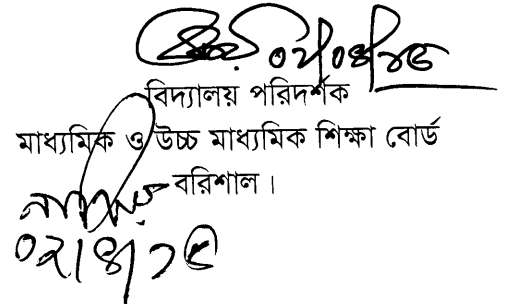 ০২/০৪/১৫
বিদ্যালয় পরিদর্শক
মাধ্যমিক ও উচ্চ মাধ্যমিক শিক্ষা বোর্ড
বরিশাল।
০২/৪/১৫